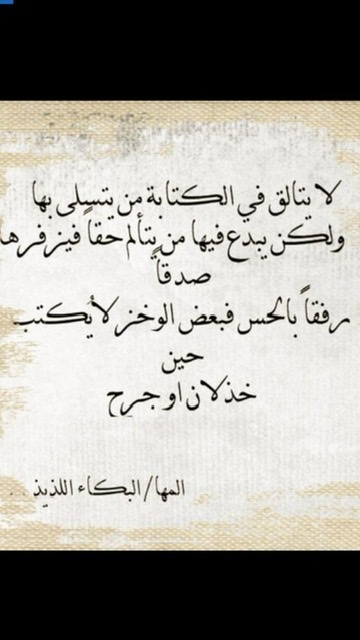 لا يتالق في الكتابة من يتسلى بها
ولكن يبدع فيها من يتألم حقاً فيزفرها
صدقاً
رفقاً بالحس فبعض الوخز لا يُكتب
حين
خذلان او جرح
المها/البكاء اللذيذ